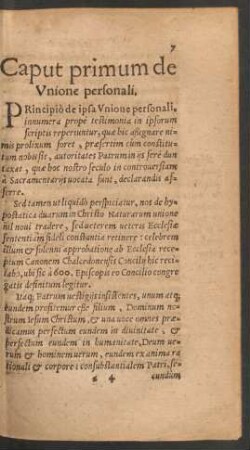 7
Caput primum de
Vnione personali.
PRincipiò de ipsa Vnione personali,
innumera propè testimonia in ipsorum
scriptis reperiuntur, quæ hic assignare ni-
mis prolixum foret, præsertim cum constitu-
tum nobis sit, autoritates Patrum in ÿs ferè dun
taxat, quæ hoc nostro seculo in controuersiam
à Sacramentarÿs uocata sunt, declarandis as-
serre.
Sed tamen ut liquidò perspiciatur, nos de hy-
postatica duarum in Christo Naturarum unione
nil noui tradere, sed ueterem ueteris Ecclesiæ
sententiam fideli constantia retinere: celebrem
illum & solenni approbatione ab Ecclesia rece-
ptum Canonem Chalcedonensis Concilÿ hic reci-
tabo, ubi sic à 600. Episcopis eo Concilio congre
gatis definitum legitur.
Itaq; Patrum uestigÿs insistentes, unum atq;
eundem profitemur esse filium, Dominum no-
strum Iesum Christum, & una uoce omnes præ-
dicamus perfectum eundem in diuinitate, &
perfectum eundem in humanitate, Deum ue-
rum & hominem uerum, eundem ex anima ra
tionali & corpore: consubstantialem Patri, se-
cundum